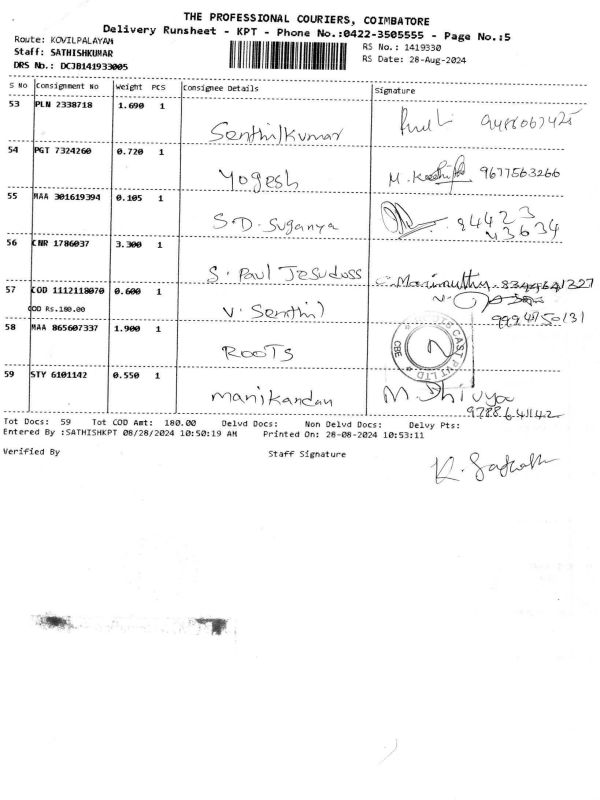 THE PROFESSIONAL COURIERS, COIMBATORE
Delivery Runsheet - KPT - Phone No.:0422-3505555 - Page No.:5
Route: KOVILPALAYAM
RS No.: 1419330
Staff: SATHISHKUMAR
RS Date: 28-Aug-2024
DRS No.: DCJB141933005
S No Consignment No Weight PCS Consignee Details Signature
53 PLN 2338718 1.690 1
Senthilkumar
54 PGT 7324260 0.720 1
Yogesh 9677563266
55 MAA 301619394 0.105 1
S.D. Suganya 84423
43634
56 CNR 1786037 3.300 1
S. Paul Jesudoss Marimuthu 8344641327
57 COD 1112118070 0.600 1
COD Rs.180.00
V. Senthil
9994150131
58 MAA 865607337 1.900 1
ROOTS
CAST PVT LTD CBE
59 STY 6101142 0.550 1
Manikandan M. Dhivya
9788641142
Tot Docs: 59 Tot COD Amt: 180.00 Delvd Docs: Non Delvd Docs: Delvy Pts:
Entered By :SATHISHKPT 08/28/2024 10:50:19 AM Printed On: 28-08-2024 10:53:11
Verified By Staff Signature